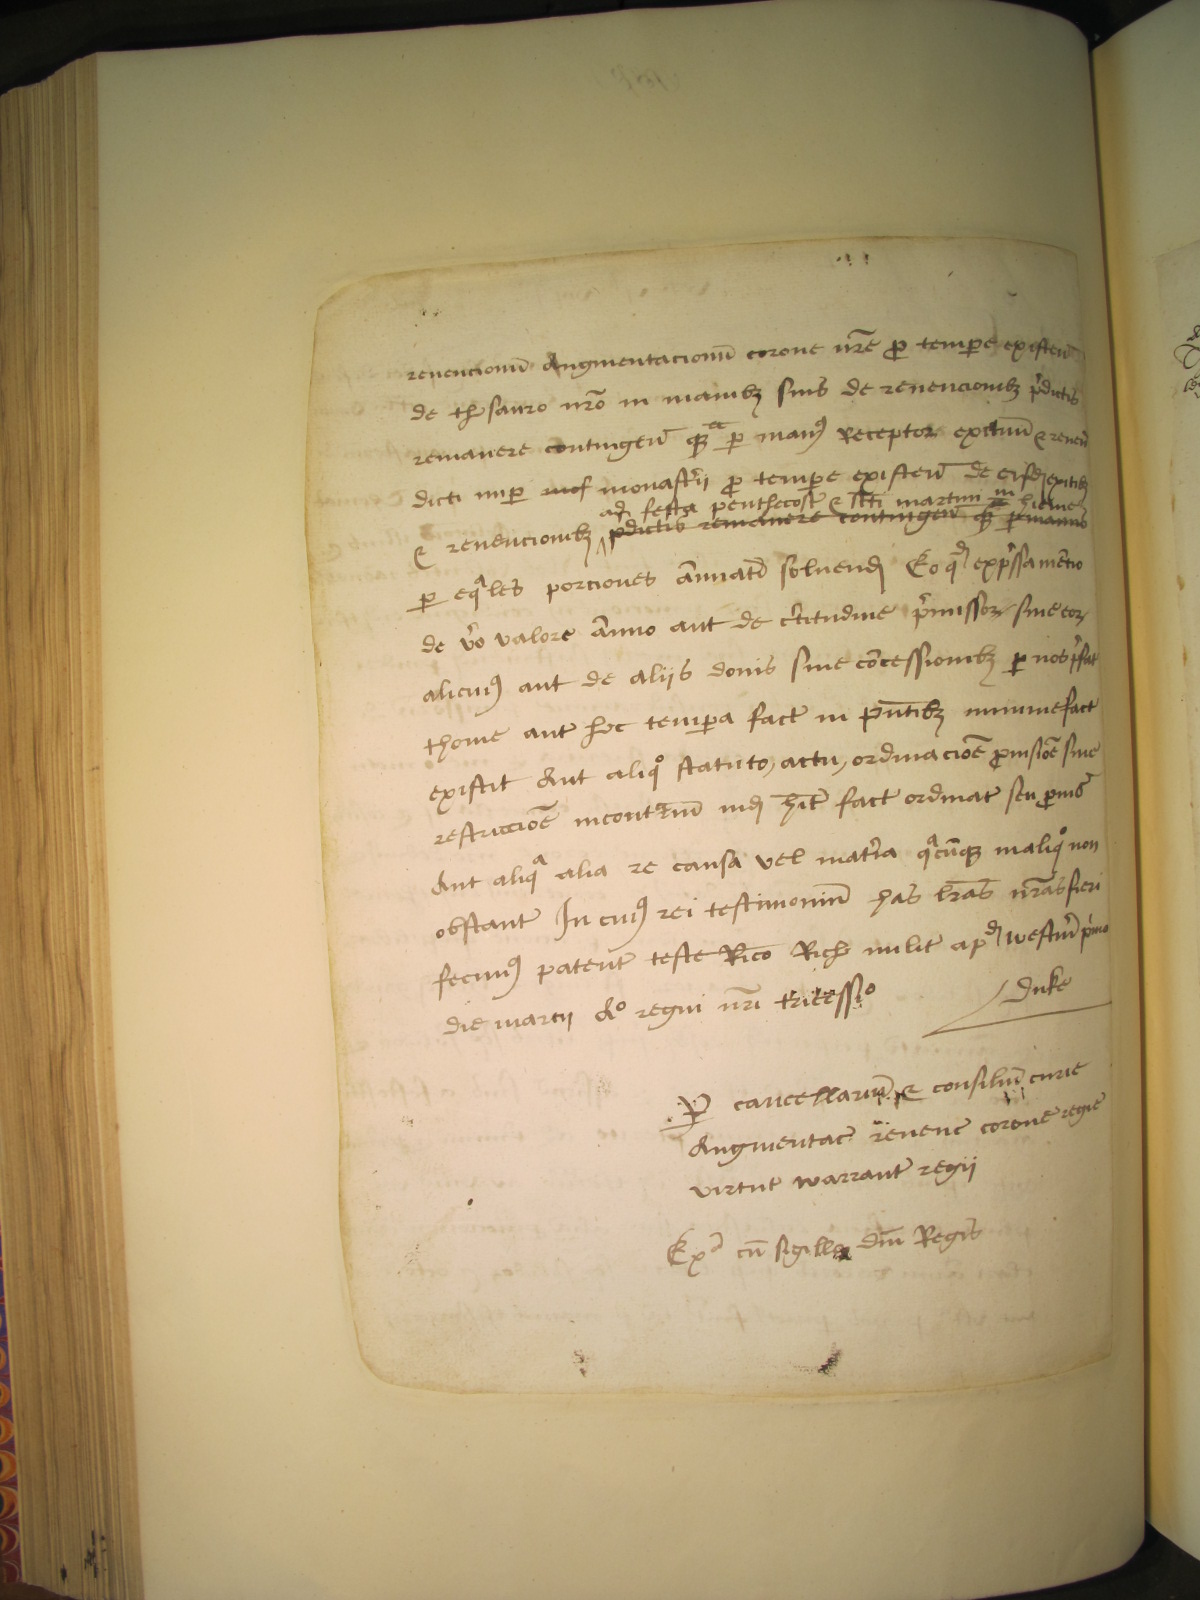 revencionū Augmentacionū corone nrē p̱ tempe existeñ
de thesauro nrō in manibȝ suis de revencionibȝ p̄dictis
remanere contingeñ qȝ et p manꝰ Receptoꝝ exituū & reveñ
dicti nup mof monastr̄ii p̱ tempe existeñ de eisdē exitibȝ
ad festa penthecost & sc̄ti martini in in hieme
& revencionibȝ ^ p̄dictis remanere contingeñ qȝ p manus
p eqᵃles porciones ānuatī solvend Eo qᵈ exp̄ssa mēcio
de vo valore ānno aut de c̄titudine p̄missoꝝ sive eoꝝ
alicuiꝰ aut de aliis donis sive cōcessionibȝ p nos p̄fat
thome ante hec tempa fact in p̄ntibȝ minime fact
existit Aut aliqᵒ statuto, actu, ordinacioē p̱visioē sive
restriccioē incontrīū inde hit̄ fact ordinat seu p̱vis̄
Aut aliqᵃ alia re causa vel mat̄ia qᵃcūqȝ in aliqᵒ non
obstante In cuiꝰ rei testimoniū has lr̄as nr̄as fieri
fecimꝰ patent teste Rīco Rich milit apᵈ westm̄ p̄mo
die marcii Aᵒ regni nr̄i tricessīᵒ
Duke
P cancellariū & consiliū curie
Augmentac revenc corone regie
virtut warrant regii
Exᵃ cū sigillo dn̄i Regis